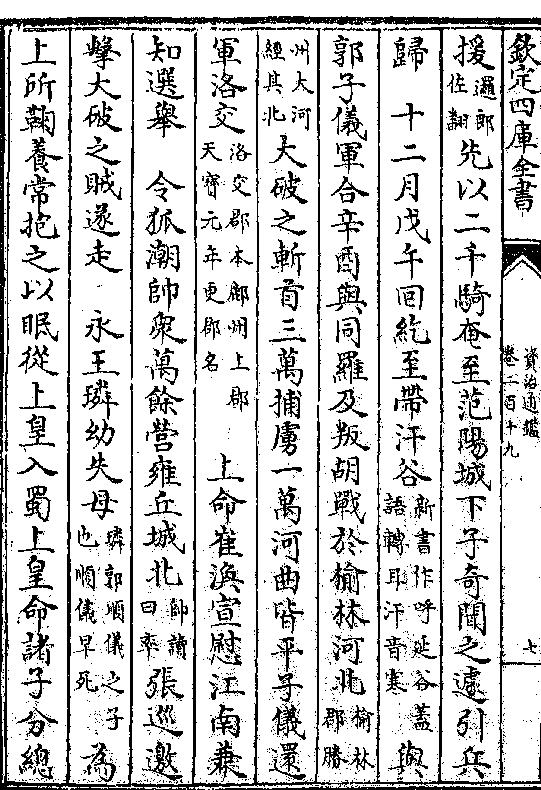 欽定四庫全書
資治通鑑
卷二百十九
七
援邏郎佐翻先以二千騎奄至范陽城下子奇聞之遽引兵
歸　十二月戊午回紇至帶汗谷新書作呼延谷蓋語轉耳汗音寒與
郭子儀軍合辛酉與同羅及叛胡戰於榆林河北榆林郡勝
州大河經其北大破之斬首三萬捕虜一萬河曲皆平子儀還
軍洛交洛交郡本鄜州上郡天寶元年更郡名　上命崔渙宣慰江南兼
知選舉　令狐潮帥衆萬餘營雍丘城北帥讀曰率張巡邀
擊大破之賊遂走　永王璘幼失母璘郭順儀之子也順儀早死為
上所鞠養常抱之以眠從上皇入蜀上皇命諸子分總